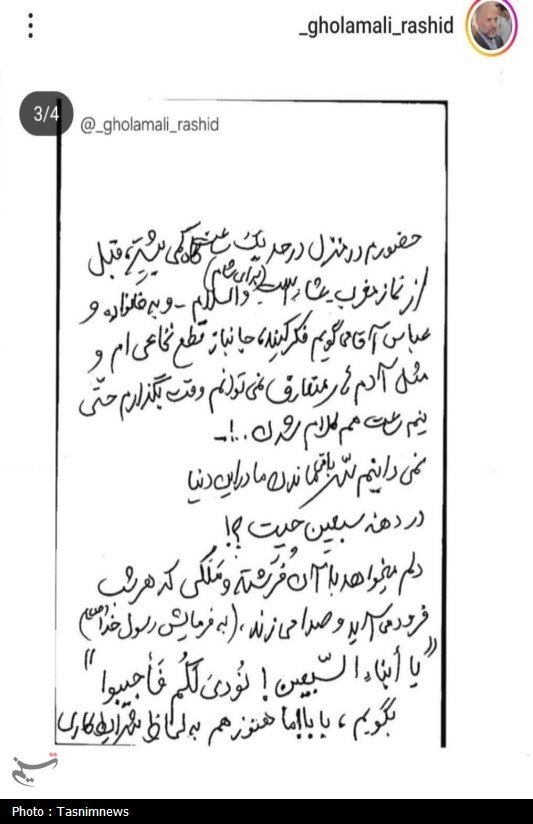 _gholamali_rashid
3/4
@_gholamali_rashid
حضورم در منزل در حد یک ساعت گاه کمی بیشتر، قبل
از نماز مغرب عشاء است (برای شام) والسلام - و به خانواده و
عباس آقا می گویم فکر کنید، جانباز قطع نخاعی ام و
مثل آدم های متعارف نمی توانم وقت بگذارم حتّی
نیم ساعت هم کلام شدن ..!-
نمی دانیم سّر باقیماندن ما در این دنیا
در دهه سبعین چیست ؟!
دلم میخواهد با آن فُرشته و مَلَکی که هر شب
فرود می آید و صدا می زند، (به فرمایش رسول خدا (ص))
"یا أبناء السّبعین ! نُودیَ لَکُم فَأجیبوا"
بگویم ، بابا اما هنوز هم به لحاظ شرایط کاری
تسنیم
Photo : Tasnimnews